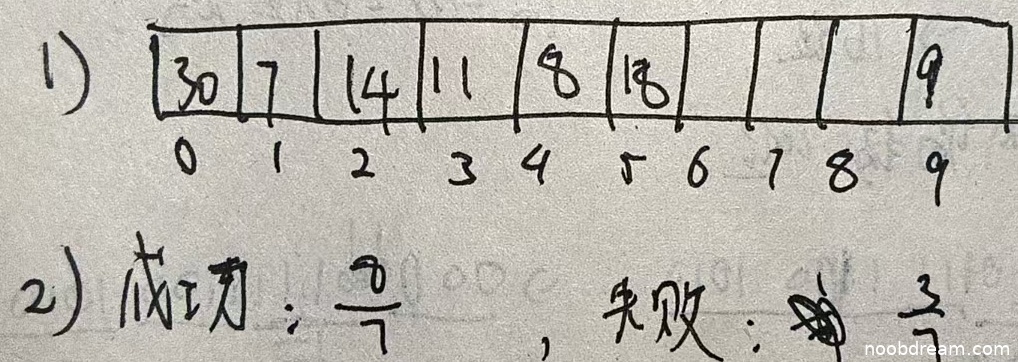 1) 30 7 14 11 8 18 9
0 1 2 3 4 5 6 7 8 9
2) 成功: 8/7 , 失败: 3/7
noobdream.com